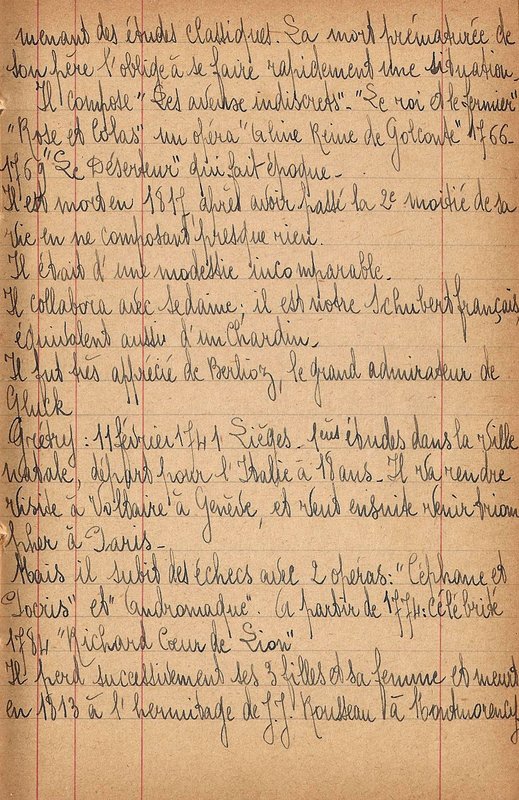 menant des études classiques. La mort prématurée de
son père l'oblige à se faire rapidement une situation.
Il compose "Les aveux indiscrets" - "Le roi et le fermier"
"Rose et Colas" un opéra "Aline Reine de Golconte" 1766-
1769 "Le Déserteur" qui fait époque -
Il est mort en 1817 après avoir passé la 2e moitié de sa
vie en ne composant presque rien.
Il était d'une modestie incomparable.
Il collabora avec Sedame ; il est notre Schubert français
équivalent aussi d'un Chardin -
Il fut très apprécié de Berlioz, le grand admirateur de
Gluck
Grétry : 11 février 1741 Lièges - 1ères études dans la ville
natale, départ pour l'Italie à 18 ans. Il va rendre
visite à Voltaire à Genève, et veut ensuite venir triom
pher à Paris -
Mais il subit des échecs avec 2 opéras : "Céphane et
Procris" et "Andromaque". A partir de 1774 : célébrité
1784 "Richard Cœur de Lion"
Il perd successivement ses 3 filles et sa femme et meurt
en 1813 à l'hermitage de J.J. Rousseau à Montmorency